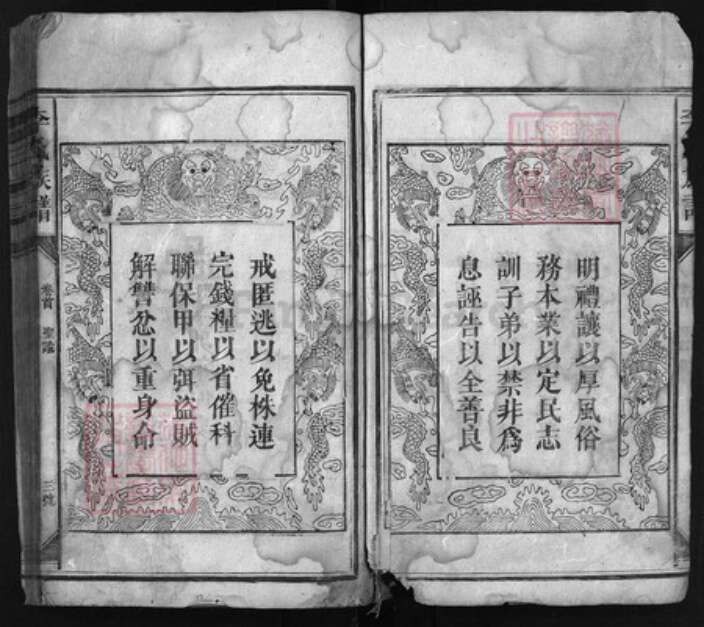 明禮讓以厚風俗
務本業以定民志
訓子弟以禁非為
息誣告以全善良
戒匿逃以免株連
完錢糧以省催科
聯保甲以弭盜賊
解讐忿以重身命
族譜
卷首 聖諭
三號